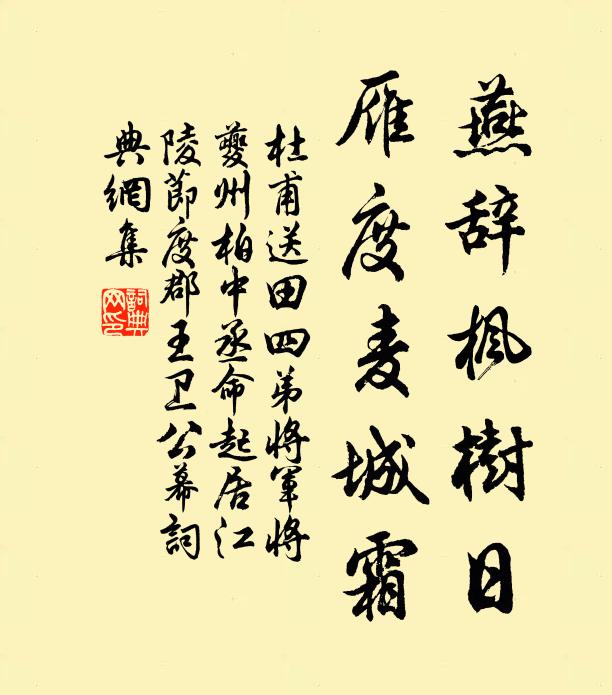 燕辞枫樹日
雁度麦城霜
杜甫送田四弟将軍将
夔州柏中丞命起居江
陵節度郡王卫公幕詞
典網集
詞典
网印